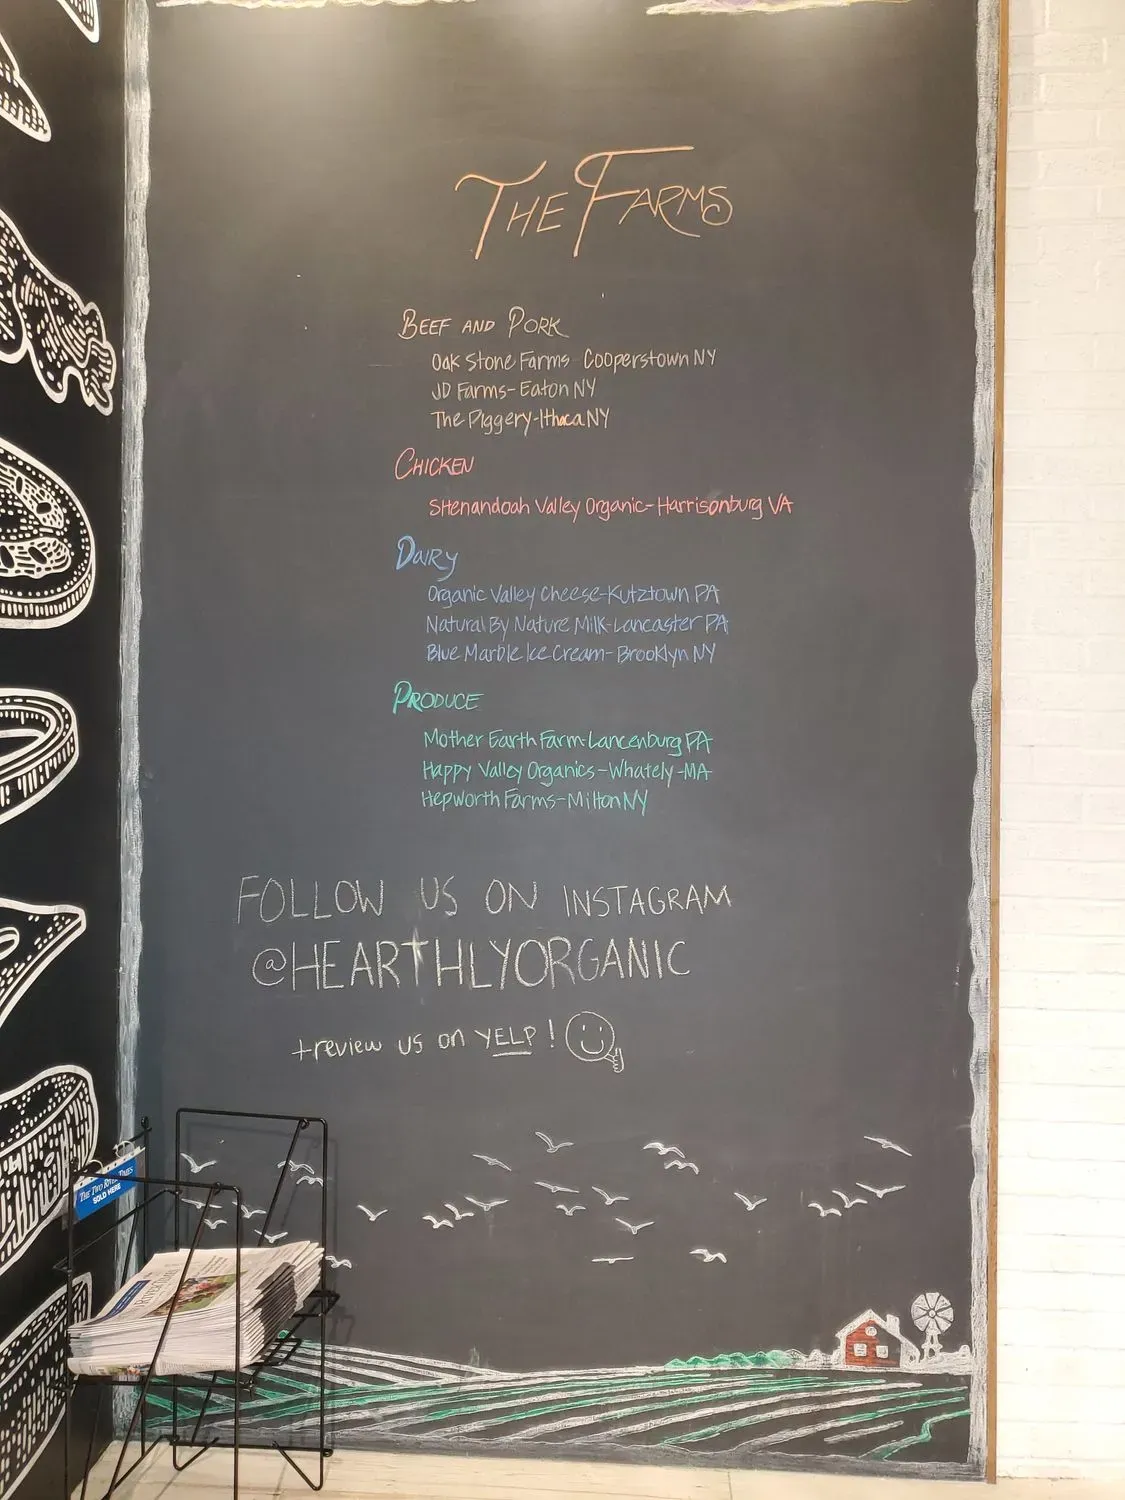 THE FARMS
BEEF AND PORK
Oak Stone Farms Cooperstown NY
JD Farms-Eaton NY
The Piggery-Ithaca NY
CHICKEN
Shenandoah Valley Organic-Harrisonburg VA
DAIRY
Organic Valley Cheese-Kutztown PA
Natural By Nature Milk-Lancaster PA
Blue Marble Ice Cream-Brooklyn NY
PRODUCE
Mother Earth Farm-Lancenburg PA
Happy Valley Organics-Whately-MA
Hepworth Farms-Milton NY
FOLLOW US ON INSTAGRAM
@HEARTHLYORGANIC
+review us on YELP!
THE TWO RIVER TIMES
SOLD HERE